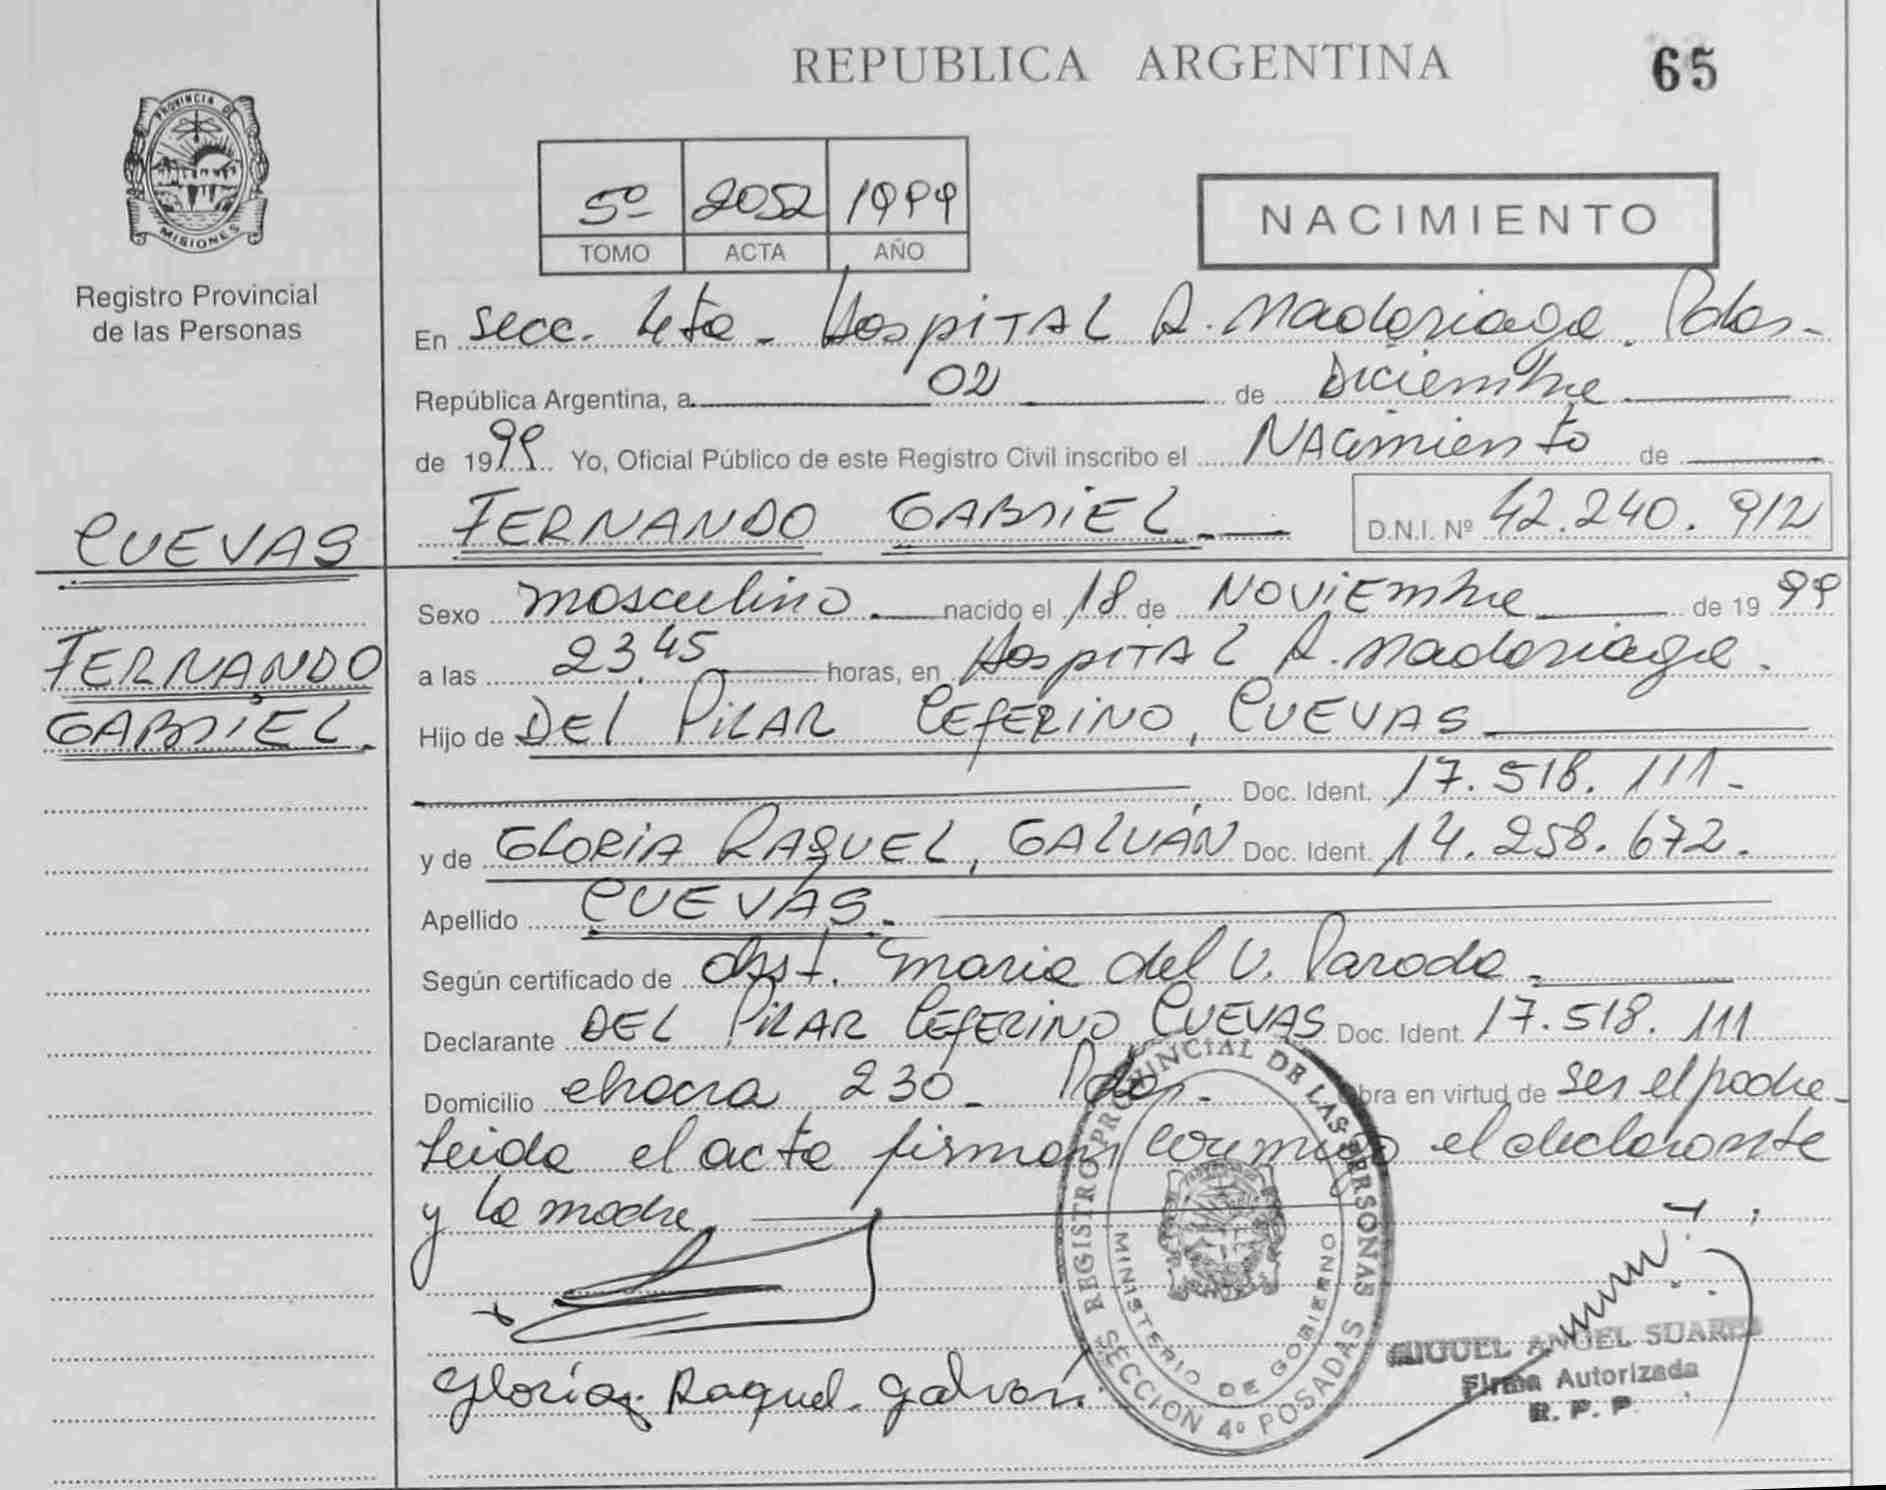 REPUBLICA ARGENTINA
65
PROVINCIA DE
MISIONES
Registro Provincial
de las Personas
5º 2052 1999
TOMO ACTA AÑO
NACIMIENTO
En secc. 4ta - Hospital R. Madariaga. Pdas-
República Argentina, a 02 de Diciembre
de 1999 Yo, Oficial Público de este Registro Civil inscribo el Nacimiento de
FERNANDO GABRIEL.
D.N.I. Nº 42.240.912
CUEVAS
FERNANDO
GABRIEL.
Sexo masculino nacido el 18 de Noviembre de 1999
a las 23,45 horas, en Hospital R. Madariaga.
Hijo de DEL PILAR CEFERINO, CUEVAS
Doc. Ident. 17.518.111-
y de GLORIA RAQUEL, GALVÁN Doc. Ident. 14.258.672.
Apellido CUEVAS.
Según certificado de Obst. Maria del V. Paroda.
Declarante DEL PILAR CEFERINO CUEVAS Doc. Ident. 17.518.111
Domicilio chacra 230 - Pdas. Obra en virtud de ser el padre-
Leida el acta firman conmigo el declarante
y la madre
Gloria Raquel Galván.
REGISTRO PROVINCIAL DE LAS PERSONAS
MINISTERIO DE GOBIERNO
SECCION 4º POSADAS
MIGUEL ANGEL SUAREZ
Firma Autorizada
R. P. P.